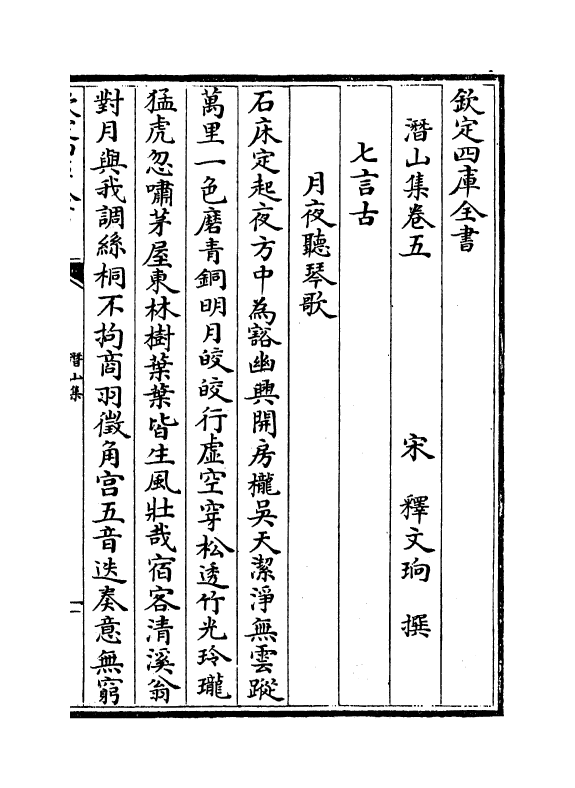 欽定四庫全書
潛山集卷五
宋 釋文珦 撰
七言古
月夜聽琴歌
石床定起夜方中為豁幽興開房櫳吳天潔淨無雲蹤
萬里一色磨青銅明月皎皎行虛空穿松透竹光玲瓏
猛虎忽嘯茅屋東林樹葉葉皆生風壯哉宿客清溪翁
對月與我調絲桐不拘商羽徵角宮五音迭奏意無窮
潛山集
一